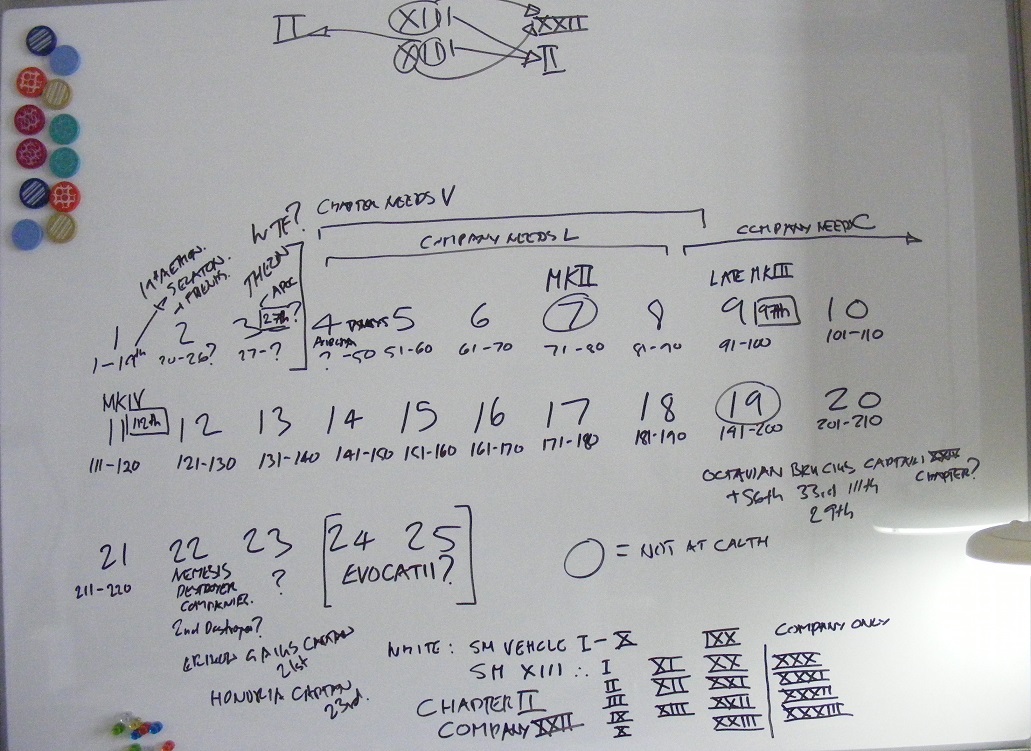 II XIII XXII
XIII II
WTF? CHAPTER NEEDS V
COMPANY NEEDS L COMPANY NEEDS C
THEION
MKII LATE MKIII
1 2 3 27th? 4 5 6 7 8 9 97th 10
1-19th 20-26? 27-? ?-50 51-60 61-70 71-80 81-90 91-100 101-110
MKIV
11 112th 12 13 14 15 16 17 18 19 20
111-120 121-130 131-140 141-150 151-160 161-170 171-180 181-190 191-200 201-210
OCTAVIAN BRUCIUS CAPTAIN
CHAPTER?
+56th 33rd 111th
29th
21 22 23 [24 25]
211-220 NEMESIS ? EVOCATII?
DESTROYER
COMPANIES.
2nd Destroyer?
= NOT AT CALTH
GAIUS CAPTAIN
21st
HONORIA CAPTAIN
23rd.
COMPANY ONLY
WHITE: SM VEHICLE I-X IXX
SM XIII : I XI XX XXX
II XII XXI XXXI
CHAPTER II III XIII XXII XXXII
COMPANY XXII IX XXIII XXXIII
X